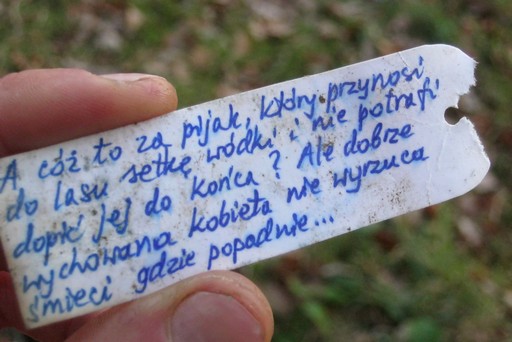 A cóż to za pijak, który przynosi
do lasu setkę wódki i nie potrafi
dopić jej do końca? Ale dobrze
wychowana kobieta nie wyrzuca
śmieci gdzie popadnie...